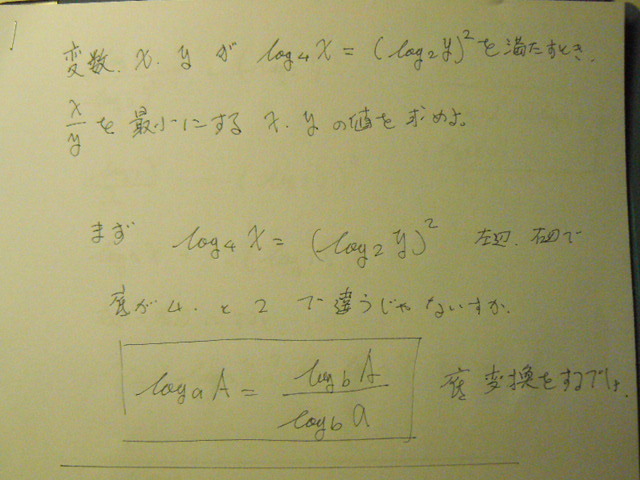 1
変数 x. y が log₄x = (log₂y)² を満たすとき.
x/y を最小にする x. y の値を求めよ。
まず log₄x = (log₂y)² 左辺. 右辺で
底が4. と2 で違うじゃないすか.
logₐA = log_b A / log_b a 底変換をするでしょ.